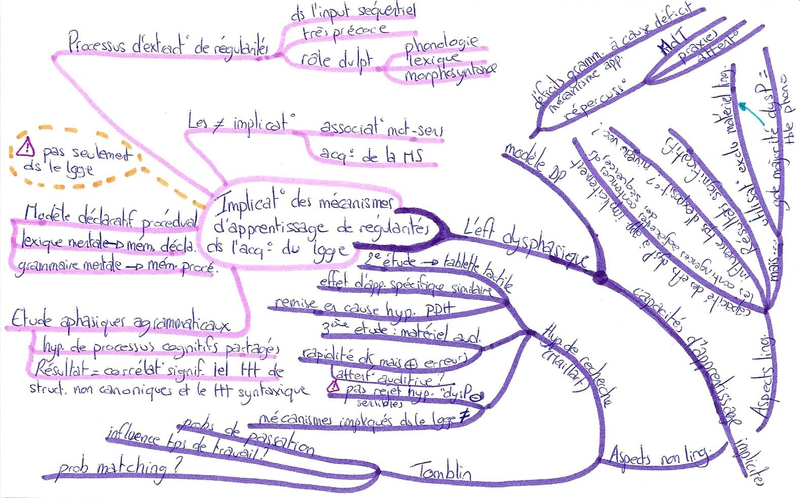 Processus d'extract° de régularités
ds l'input séquentiel
très précoce
rôle du pt
phonologie
lexique
morphosyntaxe
Les ≠ implicat°
associat° mot-sens
acq° de la MS
⚠ pas seulement
ds le lgge
Implicat° des mécanismes
d'apprentissage de régularités
ds l'acq° du lgge
Modèle déclaratif procédural
lexique mental → mém. décla.
grammaire mentale → mém. procé.
Etude aphasiques agrammaticaux
hyp. de processus cognitifs partagés
Résultat = corrélat° signif. iel ttt de
struct. non canoniques et le ttt syntaxique
L'eft dysphasique
modèle DP
déficits gramm. à cause déficit
mécanisme app.
répercuss°
MdT
praxies
attent°
capacités d'apprentissage implicites
Aspects ling.
mais...
gde majorité dysP =
tble phono
utilisat° exclu matériel ling.
Résultats significatifs
influence tps d'exposit° : niveau vx ?
capacité des efts dysP à traiter implicitement
les contingences
Aspects non ling.
Hyp. de recherche
(Maillart)
1e étude → tablette tactile
effet d'app. spécifique similaire
remise en cause hyp. PDH
2ème étude : matériel aud.
rapidité ok mais ⊕ erreurs
attent° auditive ?
⚠ pas rejet hyp. "dysP ⊖
sensibles
mécanismes impliqués ds le lgge ≠
Tomblin
probs de passation
influence tps de travail ?
prob matching ?